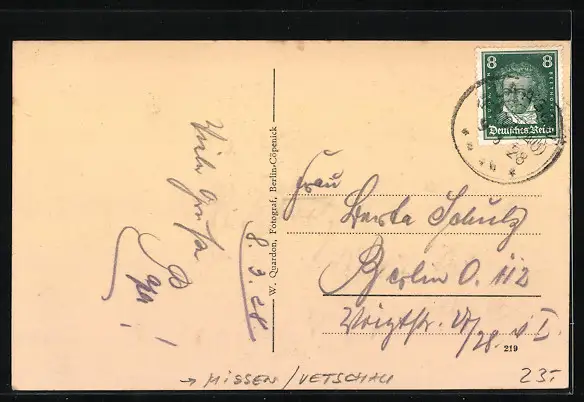 Viele Grüße
8.3.28
W. Quardon, Fotograf, Berlin-Cöpenick
8 8
BEETHOVEN
Deutsches Reich
28
Frau
Berta Schulz
Berlin O. 112
Voigtstr.
219
→ MISSEN/VETSCHAU
23.-